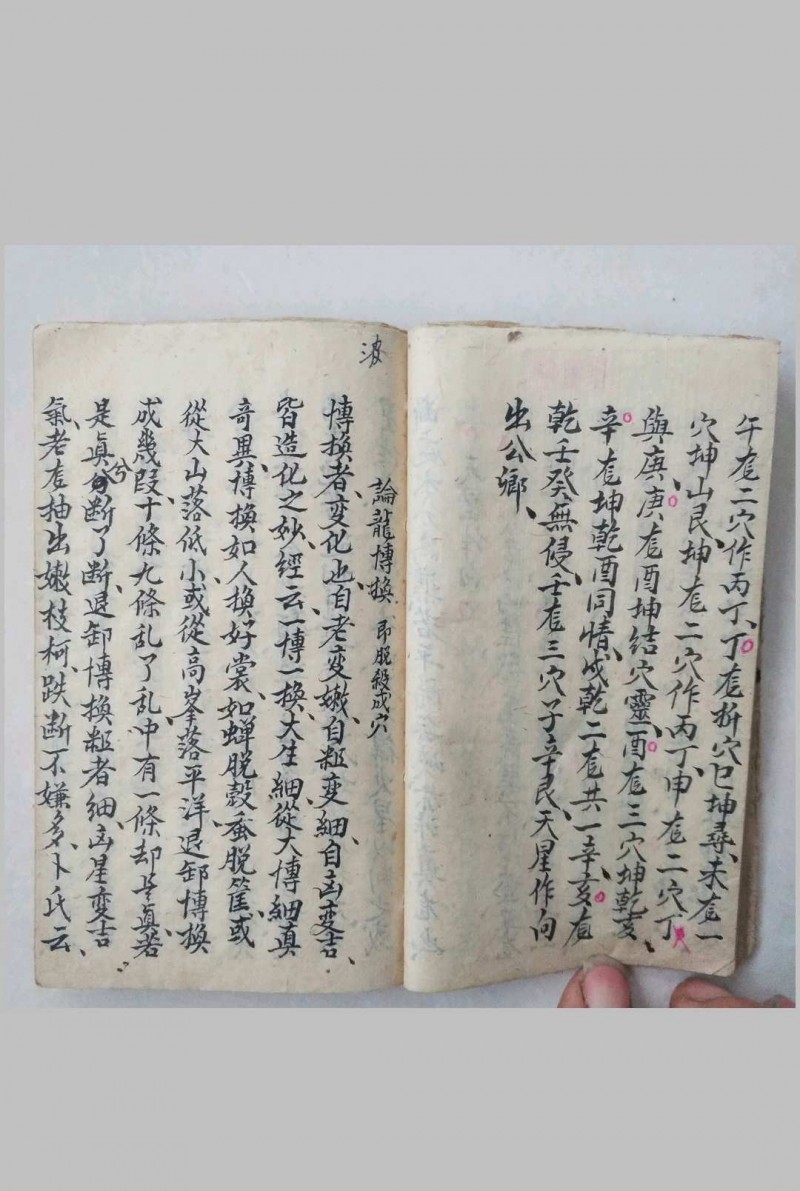 午𪪺二穴作丙丁丁𪪺析穴巳坤尋未𪪺一
穴坤山艮坤𪪺二穴作丙丁申𪪺二穴丁
與庚庚𪪺酉坤結穴靈酉𪪺三穴坤乾亥
辛𪪺坤乾酉同情戍乾二𪪺共一辛亥𪪺
乾壬癸無侵壬𪪺三穴子辛艮天星作向
出公卿
波
論龍博換 即脱殺成穴
博換者变化也自老变嫩自粗变細自凶变吉
皆造化之妙經云一博一換大生細從大博細真
奇異博換如人換好裳如蟬脱殼蚕脱筐或
從大山落低小或從高峯落平洋退卸博換
成幾段十條九條乱了乱中有一條却是真若
是真兮断了断退卸博換粗者細凶星变吉
氣老𪪺抽出嫩枝柯跌断不嫌多卜氏云